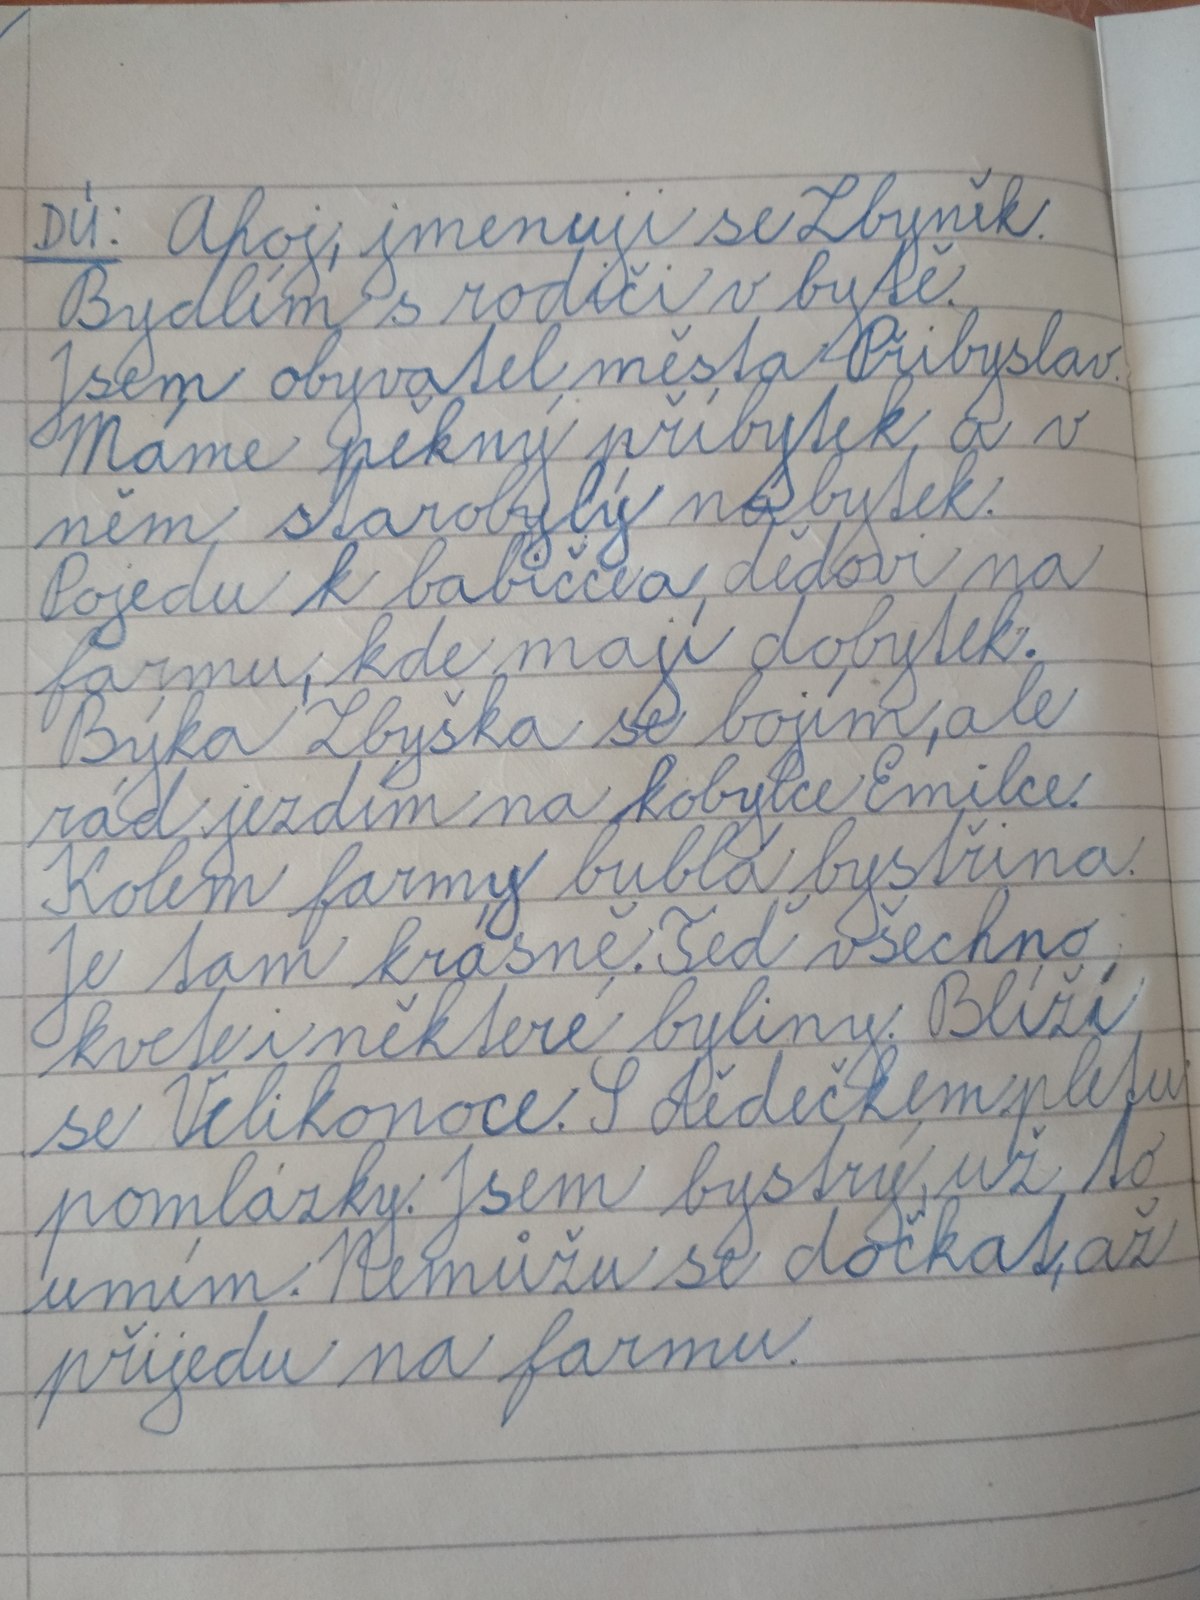 DÚ: Ahoj, jmenuji se Zbyněk.
Bydlím s rodiči v bytě.
Jsem obyvatel města Přibyslav.
Máme pěkný příbytek a v
něm starobylý nábytek.
Pojedu k babičce a dědovi na
farmu, kde mají dobytek.
Býka Zbyška se bojím, ale
rád jezdím na kobylce Emilce.
Kolem farmy bublá bystřina.
Je tam krásně. Teď všechno
kvete i některé byliny. Blíží
se Velikonoce. S dědečkem pletu
pomlázky. Jsem bystrý, už to
umím. Nemůžu se dočkat, až
přijedu na farmu.